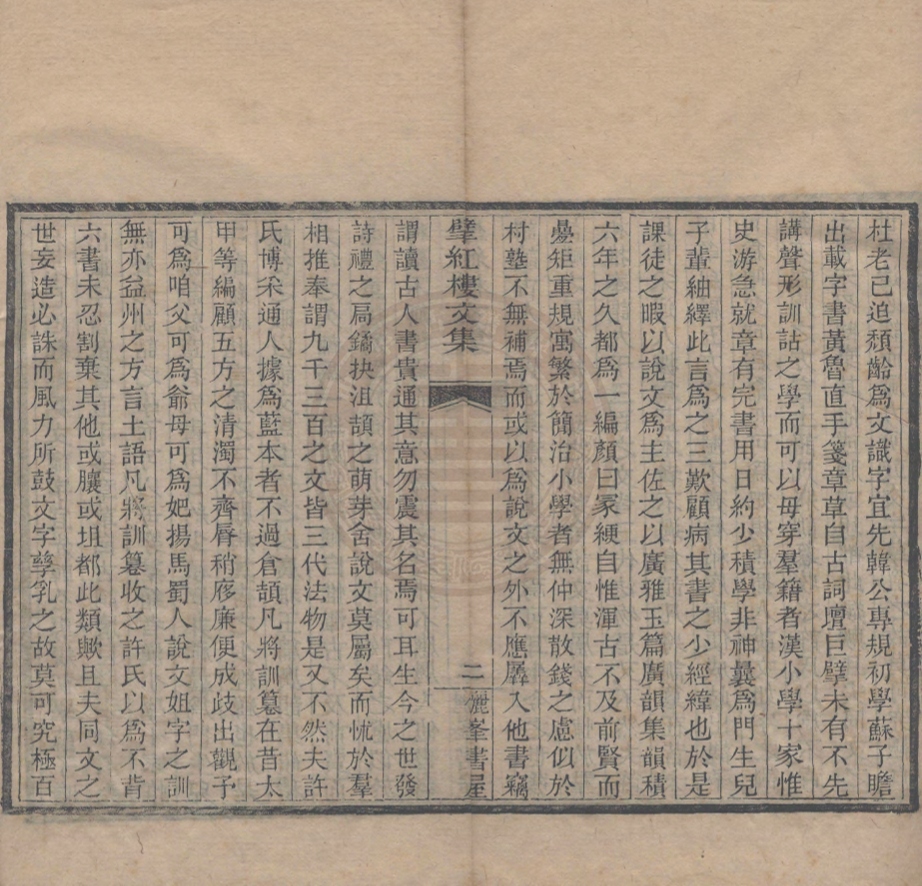 杜老已追頹齡爲文識字宜先韓公專規初學蘇子瞻
出載字書黃魯直手箋章草自古詞壇巨擘未有不先
講聲形訓詁之學而可以毋穿羣籍者漢小學十家惟
史游急就章有完書用日約少積學非神曩爲門生兒
子輩紬繹此言爲之三歎顧病其書之少經緯也於是
課徒之暇以說文爲主佐之以廣雅玉篇廣韻集韻積
六年之久都爲一編顏曰冢綆自惟渾古不及前賢而
疊矩重規寓繁於簡治小學者無仲深散錢之慮似於
村塾不無補焉而或以爲說文之外不應羼入他書竊
擘紅樓文集
二
麗峯書屋
謂讀古人書貴通其意勿震其名焉可耳生今之世發
詩禮之扃鐍抉沮頡之萌芽舍說文莫屬矣而怵於羣
相推奉謂九千三百之文皆三代法物是又不然夫許
氏博采通人據爲藍本者不過倉頡凡將訓纂在昔太
甲等編顧五方之清濁不齊脣稍廖廉便成歧出觀予
可爲咱父可爲爺母可爲妑揚馬蜀人說文姐字之訓
無亦益州之方言土語凡將訓纂收之許氏以爲不肯
六書未忍割棄其他或驤或坥都此類歟且夫同文之
世妄造必誅而風力所鼓文字孳乳之故莫可究極百